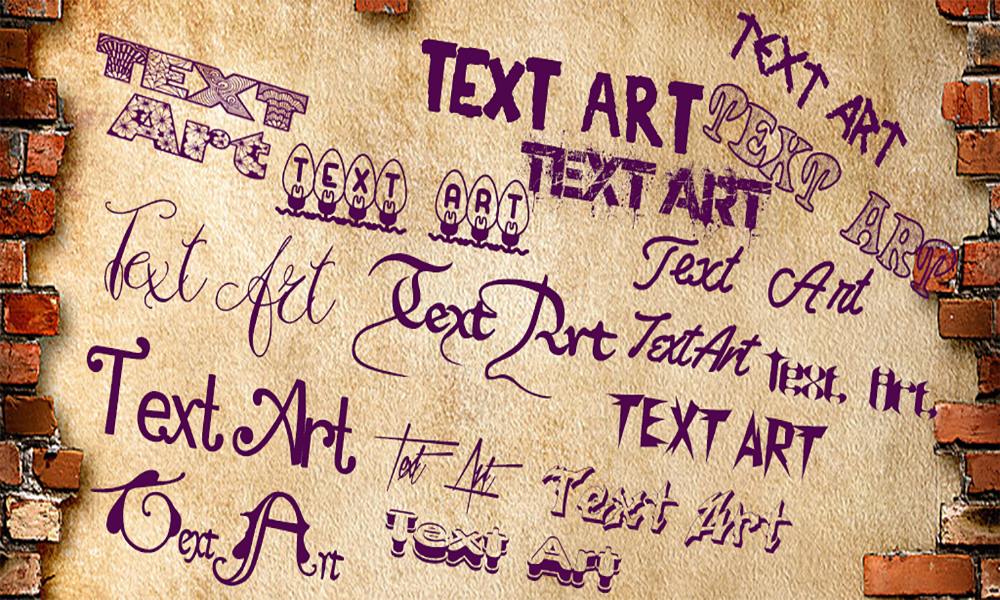 TEXT
Art
TEXT ART
TEXT ART
TEXT ART
TEXT ART
TEXT ART
Text Art
Text Art
Text Art
Text Art
Text Art
Text Art
TEXT ART
Text Art
Text Art
Text Art
Text Art